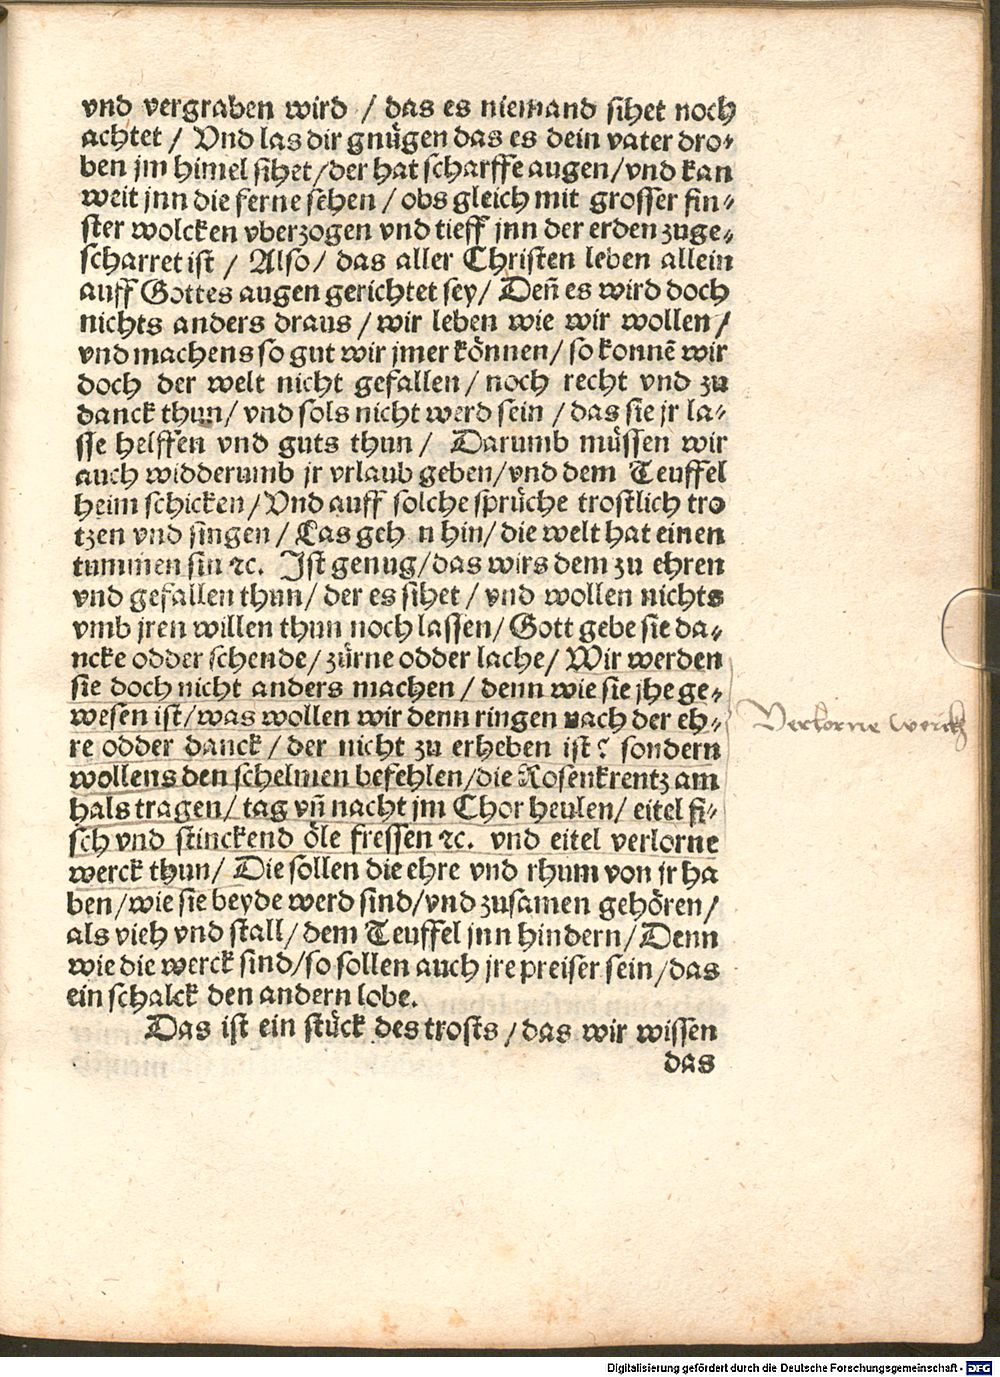 vnd vergraben wird / das es niemand sihet noch
achtet / Vnd las dir gnügen das es dein vater dro⸗
ben jm himel sihet / der hat scharffe augen / vnd kan
weit jnn die ferne sehen / obs gleich mit grosser fin⸗
ster wolcken vberzogen vnd tieff jnn der erden zuge⸗
scharret ist / Also / das aller Christen leben allein
auff Gottes augen gerichtet sey / Deñ es wird doch
nichts anders draus / wir leben wie wir wollen /
vnd machens so gut wir jmer können / so konnē wir
doch der welt nicht gefallen / noch recht vnd zu
danck thun / vnd sols nicht werd sein / das sie jr la⸗
sse helffen vnd guts thun / Darumb müssen wir
auch widderumb jr vrlaub geben / vnd dem Teuffel
heim schicken / Vnd auff solche sprüche trostlich tro
tzen vnd singen / Las geh n hin / die welt hat einen
tummen sin ꝛc. Ist genug / das wirs dem zu ehren
vnd gefallen thun / der es sihet / vnd wollen nichts
vmb jren willen thun noch lassen / Gott gebe sie da⸗
ncke odder schende / zürne odder lache / Wir werden
sie doch nicht anders machen / denn wie sie jhe ge⸗
wesen ist / was wollen wir denn ringen nach der eh⸗
re odder danck / der nicht zu erheben ist? sondern
wollens den schelmen befehlen / die Rosenkrentz am
hals tragen / tag vñ nacht jm Chor heulen / eitel fi⸗
sch vnd stinckend öle fressen ꝛc. vnd eitel verlorne
werck thun / Die sollen die ehre vnd rhum von jr ha
ben / wie sie beyde werd sind / vnd zusamen gehören /
als vieh vnd stall / dem Teuffel jnn hindern / Denn
wie die werck sind / so sollen auch jre preiser sein / das
ein schalck den andern lobe.
Das ist ein stück des trosts / das wir wissen
das
Verlorne werck
Digitalisierung gefördert durch die Deutsche Forschungsgemeinschaft - DFG